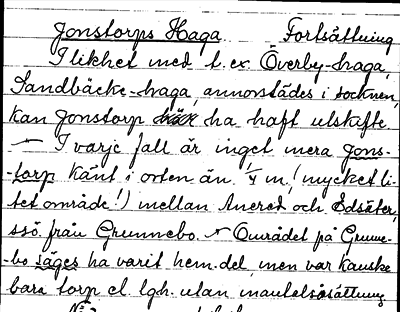 Jonstorps Haga. Fortsättning
I likhet med t.ex. Överby-haga,
Sandbäcks-haga, annorstädes i socknen,
kan Jonstorp ha haft utskifte.
– I varje fall är inget mera Jons-
-torp känt i orten än 1/4 m. (mycket li-
tet område!) mellan Anered och Edsäter,
ssö. från Grunnebo. – Området på Grunne-
-bo säges ha varit hem.del, men var kanske
bara torp el. lgh. utan mantalssättning